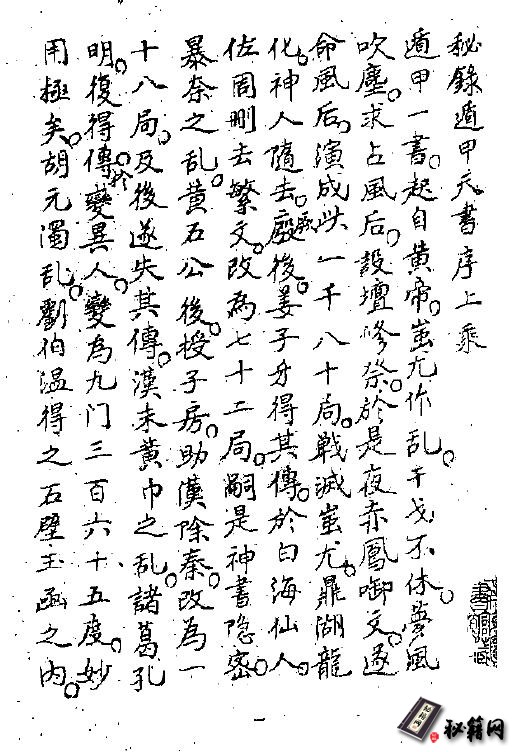 秘錄遁甲天書序上乘
遁甲一書。起自黃帝。蚩尤作乱。干戈不休。夢風
吹塵。求占風后。設壇修祭。於是夜赤鳳啣文。遂
命風后。演成此一千八十局。戰滅蚩尤。鼎湖龍
化。神人隨去。厥後姜子牙得其傳。於白海仙人。
佐周刪去繁文。改為七十二局。嗣是神書隐密。
暴秦之乱。黄石公後授子房。助漢除秦。改為一
十八局。及後遂失其傳。漢末黄巾之乱。諸葛孔
明。復得傳於變異人。變為九门三百六十五度。妙
用極矣。胡元濁乱。劉伯温得之石壁玉函之内。
一
秘籍网